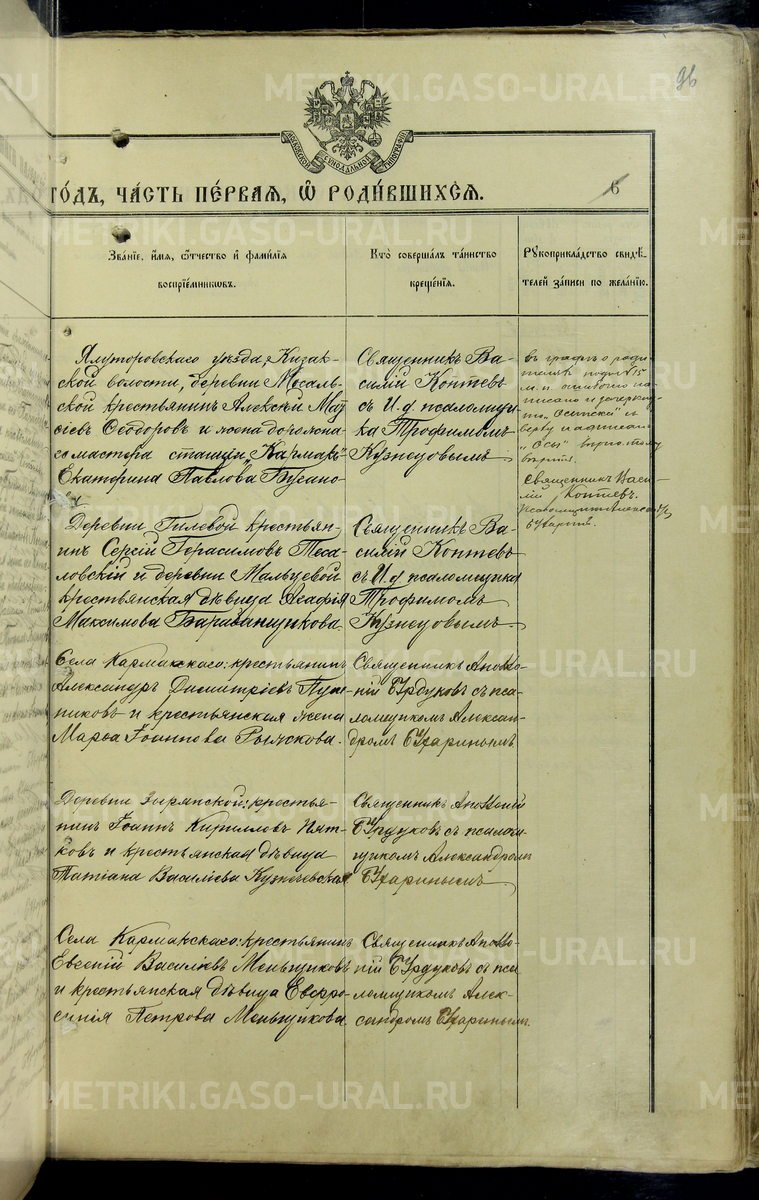 96
МОСКОВСКОЙ СУНОДАЛЬНОЙ ТИПОГРАФІИ
ГО́ДЪ, ЧА́СТЬ ПЕ́РВАЯ, Ѡ҆ РОДИ́ВШИХСЯ.
6
Зва́нїе, и҆́мя, ѻ҆́тчество и҆ фами́лїя
воспрїе́мниковъ.
Кто̀ соверша́лъ та́инство
креще́нїя.
Рꙋкоприкла́дство свидѣ́-
телей за́писи по жела́нїю.
Ялуторовскаго уѣзда, Кизак-
ской волости, деревни Мосаль-
ской крестьянинъ Алексѣй
сіевъ Ѳеодоровъ и жена дорожна-
го мастера станціи „Кармакъ"
Екатерина Павлова
Священникъ Ва-
силій Коптевъ
съ И. д. псаломщи
ка Трофимомъ
Кузнецовымъ
въ графѣ о роди
теляхъ подъ №15
м. п. ошибочно на-
писано и зачеркну-
то
верху
„Осы" вѣрно
Священникъ Васи-
лій Коптевъ.
Псаломщикъ Александръ
Деревни Гилевой крестьян-
инъ Сергій Герасимовъ Теса-
ловскій и деревни Мальцевой
крестьянская дѣвица Агафія
Максимова Барабанщикова.
Священникъ Ва-
силій Коптевъ
съ И. д. псаломщика
Трофимомъ
Кузнецовымъ
Села Кармакскаго: крестьянинъ
Александръ Димитріевъ
никовъ и крестьянская жена
Марѳа Іоаннова Рычкова.
Священникъ Аполло-
ній Бурдуковъ съ пса-
ломщикомъ Алексан-
дромъ
Деревни Зырянской: крестья-
нинъ Іоаннъ Кирилловъ Пят-
ковъ и крестьянская дѣвица
Татіана Василіева
Священникъ Аполлоній
Бурдуковъ съ псалом
щикомъ Александромъ
Села Кармакскаго: крестьянинъ
Евгеній Василіевъ Меньщиковъ
и крестьянская дѣвица Евфро-
синія Петрова Меньщикова.
Священникъ Аполло-
ній Бурдуковъ съ пса
ломщикомъ Алек-
сандромъ
METRIKI.GASO-URAL.RU